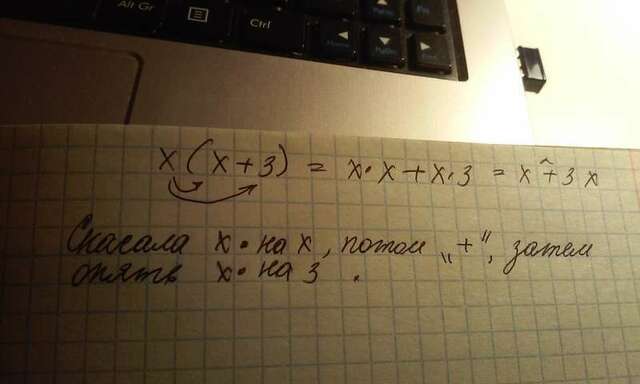 Alt Gr
Ctrl
x(x+3) = x•x+x•3 = x²+3x
Сначала x•на x, потом „+", затем
опять x•на 3.